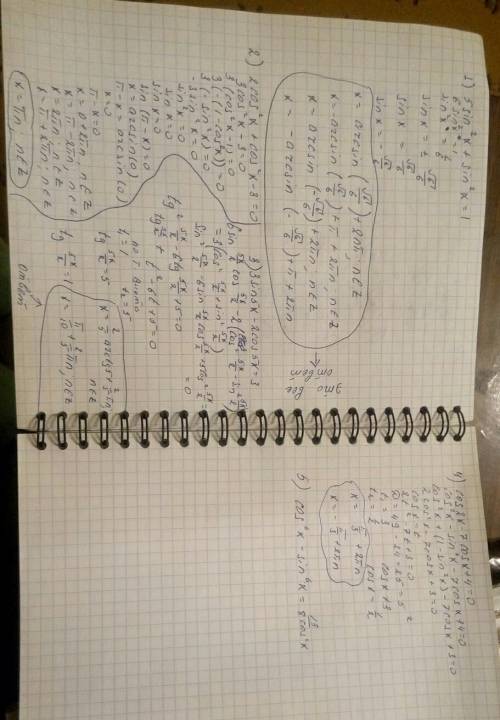 1) 5sin²x + sin²x = 1
6sin²x = 1
sin²x = 1/6
sin x = ± √6/6
sin x = √6/6
sin x = - √6/6
x = arcsin (√6/6) + 2πn; n∈Z
x = -arcsin (√6/6) + π + 2πn; n∈Z
x = arcsin (-√6/6) + 2πn; n∈Z
x = - arcsin (-√6/6) + π + 2πn
это все
ответ
2) 2cos²x + cos²x - 3 = 0
3cos²x - 3 = 0
3(cos²x - 1) = 0
3(-(1-cos²x)) = 0
3·(-sin²x) = 0
-3sin²x = 0
sin²x = 0
sin x = 0
sin x = 0
sin(π-x) = 0
x = arcsin(0)
π-x = arcsin(0)
x = 0
π-x = 0
x = 0 + 2πn, n∈Z
x = π - 2πn, n∈Z
x = 2πn, n∈Z
x = π + 2πn; n∈Z
x = πn, n∈Z
3) 3sin5x - 2cos5x = 3
6sin 5x/2 cos 5x/2 - 2(cos² 5x/2 - sin² 5x/2) =
= 3(cos² 5x/2 + sin² 5x/2)
5sin² 5x/2 + 5cos² 5x/2 = 0
tg² 5x/2 - 6tg 5x/2 + 5 = 0
t² - 6t + 5 = 0
по т. Виета
t₁ = 1 t₂ = 5
tg 5x/2 = 5 x = 2/5 arctg5 + 2/5 πn, n∈Z
tg 5x/2 = 1 x = π/10 + 2/5 πn, n∈Z
ответ
4) cos2x - 7cosx + 4 = 0
cos²x - sin²x - 7cosx + 4 = 0
2cos²x - 7cosx + 3 = 0
cosx = t
2t² - 7t + 3 = 0
D = 49 - 24 = 25 = 5²
t₁ = 3 cosx ≠ 3
t₂ = 1/2 cosx = 1/2
x = π/3 + 2πn
x = - π/3 + 2πn
5) cos⁶x - sin⁶x = 13/8 cos²x